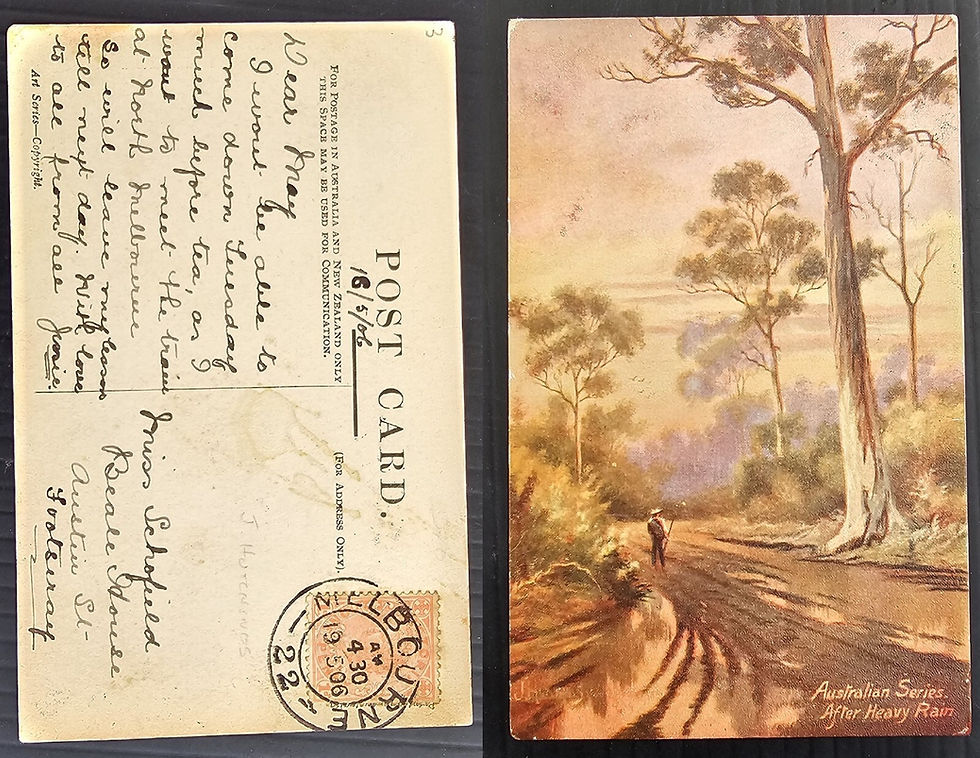 3
POST CARD.
18/5/06
FOR POSTAGE IN AUSTRALIA AND NEW ZEALAND ONLY
THIS SPACE MAY BE USED FOR COMMUNICATION.
(FOR ADDRESS ONLY).
Dear May
I wont be able to
come down Tuesday
much before tea, as I
want to meet the train
at North Melbourne
So will leave my lesson
till next day. With love
to all from all
Art Series—Copyright.
Miss Schofield
Beale House
Austin St-
Footscray
J. HUTCHINGS
MELBOURNE
AM
4 30
19 5 06
22
Australian Series.
After Heavy Rain